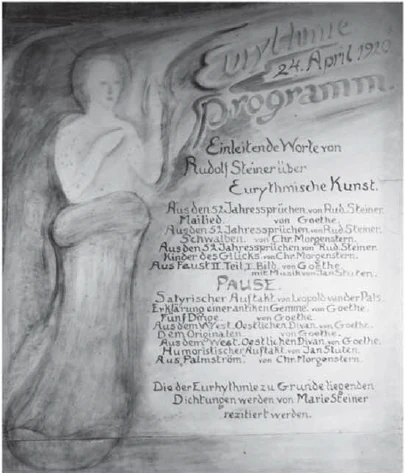 Eurythmie
24. April 1920
Programm.
Einleitende Worte von
Rudolf Steiner über
Eurythmische Kunst.
Aus den 52 Jahressprüchen von Rud. Steiner.
Mailied. von Goethe.
Aus den 52 Jahressprüchen von Rud. Steiner.
Schwalben. von Chr. Morgenstern.
Aus den 52 Jahressprüchen von Rud. Steiner
Kinder des Glücks von Chr. Morgenstern.
Aus Faust II. Teil. I. Bild. von Goethe
mit Musik von Jan Stuten.
PAUSE.
Satyrischer Auftakt von Leopold van der Pals.
Erklärung einer antiken Gemme. von Goethe.
Fünf Dinge. von Goethe.
Aus dem West. Oestlichen Divan. von Goethe.
Dem Originalen. von Goethe.
Aus dem West. Oestlichen Divan. von Goethe.
Humoristischer Auftakt. von Jan Stuten.
Aus Palmström. von Chr. Morgenstern.
Die der Eurhythmie zu Grunde liegenden
Dichtungen werden von Marie Steiner
rezitiert werden.